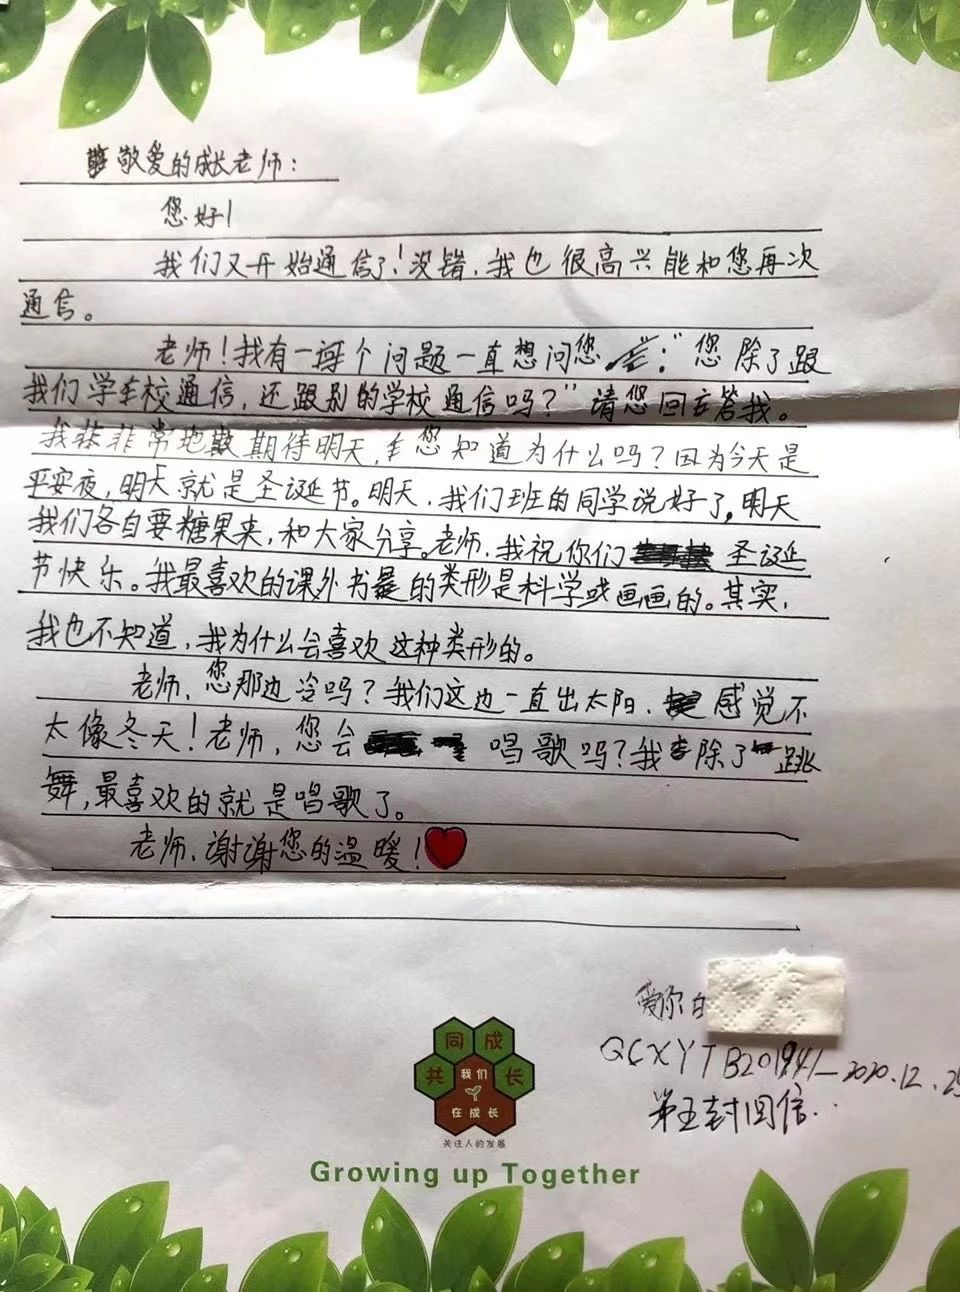 敬爱的成长老师：
您好！
我们又开始通信了！没错，我也很高兴能和您再次
通信。
老师！我有一个问题一直想问您：“您除了跟
我们学校通信，还跟别的学校通信吗？”请您回答我。
我非常地期待明天，您知道为什么吗？因为今天是
平安夜，明天就是圣诞节。明天，我们班的同学说好了，明天
我们各自要糖果来，和大家分享。老师，我祝你们圣诞
节快乐。我最喜欢的课外书的类形是科学或画画的。其实，
我也不知道，我为什么会喜欢这种类形的。
老师，您那边冷吗？我们这边一直出太阳，感觉不
太像冬天！老师，您会唱歌吗？我除了跳
舞，最喜欢的就是唱歌了。
老师，谢谢您的温暖！
爱你的
QCXYTB201941—2020.12.25
第五封回信..
同成
共我们长
在成长
关注人的发展
Growing up Together